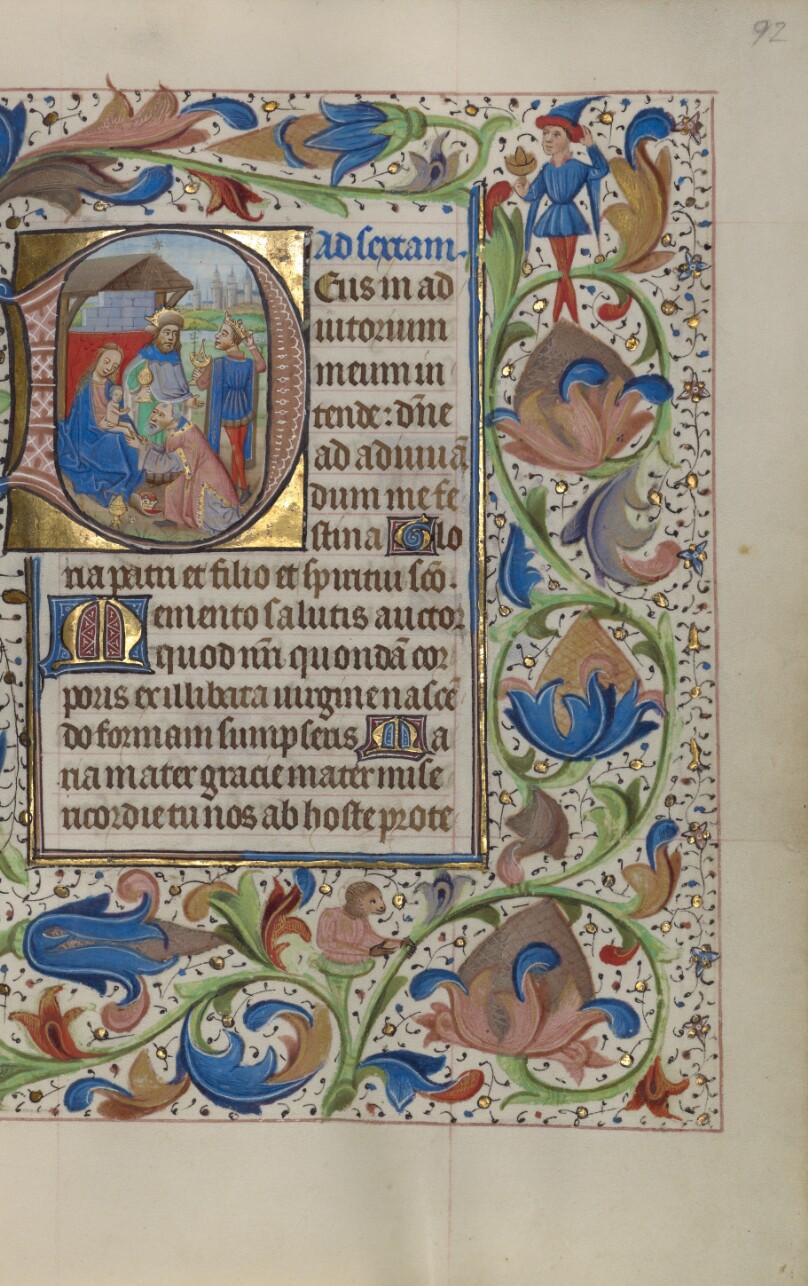 92
Ad sextam.
Deus in ad
iutorium
meum in
tende: dñe
ad adiuuā
dum me fe
stina Glo
ria patri et filio et spiritui scō.
Memento salutis auctor
quod nr̄i quondā cor
poris ex illibata uirgine nascē
do formam sumpseris Ma
ria mater gracie mater mise
ricordie tu nos ab hoste prote